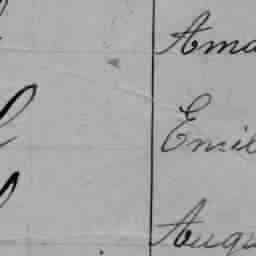 Ama
Emil
Augu